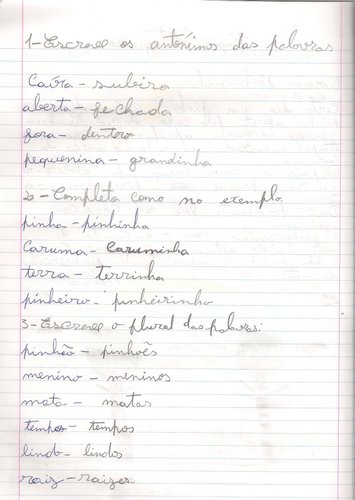 1-Escreve os antónimos das palavras
Caíra - subira
aberta - fechada
fora - dentro
pequenina - grandinha
2-Completa como no exemplo.
pinha - pinhinha
Caruma - Caruminha
terra - terrinha
pinheiro - pinheirinho
3-Escreve o plural das palavras:
pinhão - pinhões
menino - meninos
mata - matas
tempo - tempos
lindo - lindos
raiz - raizes